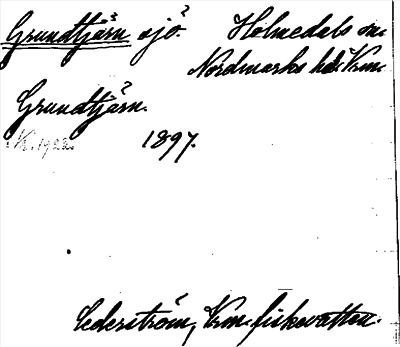 Grundtjärn sjö. Holmedals sn.
Nordmarks hd. Vrm.
Grundtjärn.
K. 1922. 1897.
Cederström, Vrm. fiskevatten.